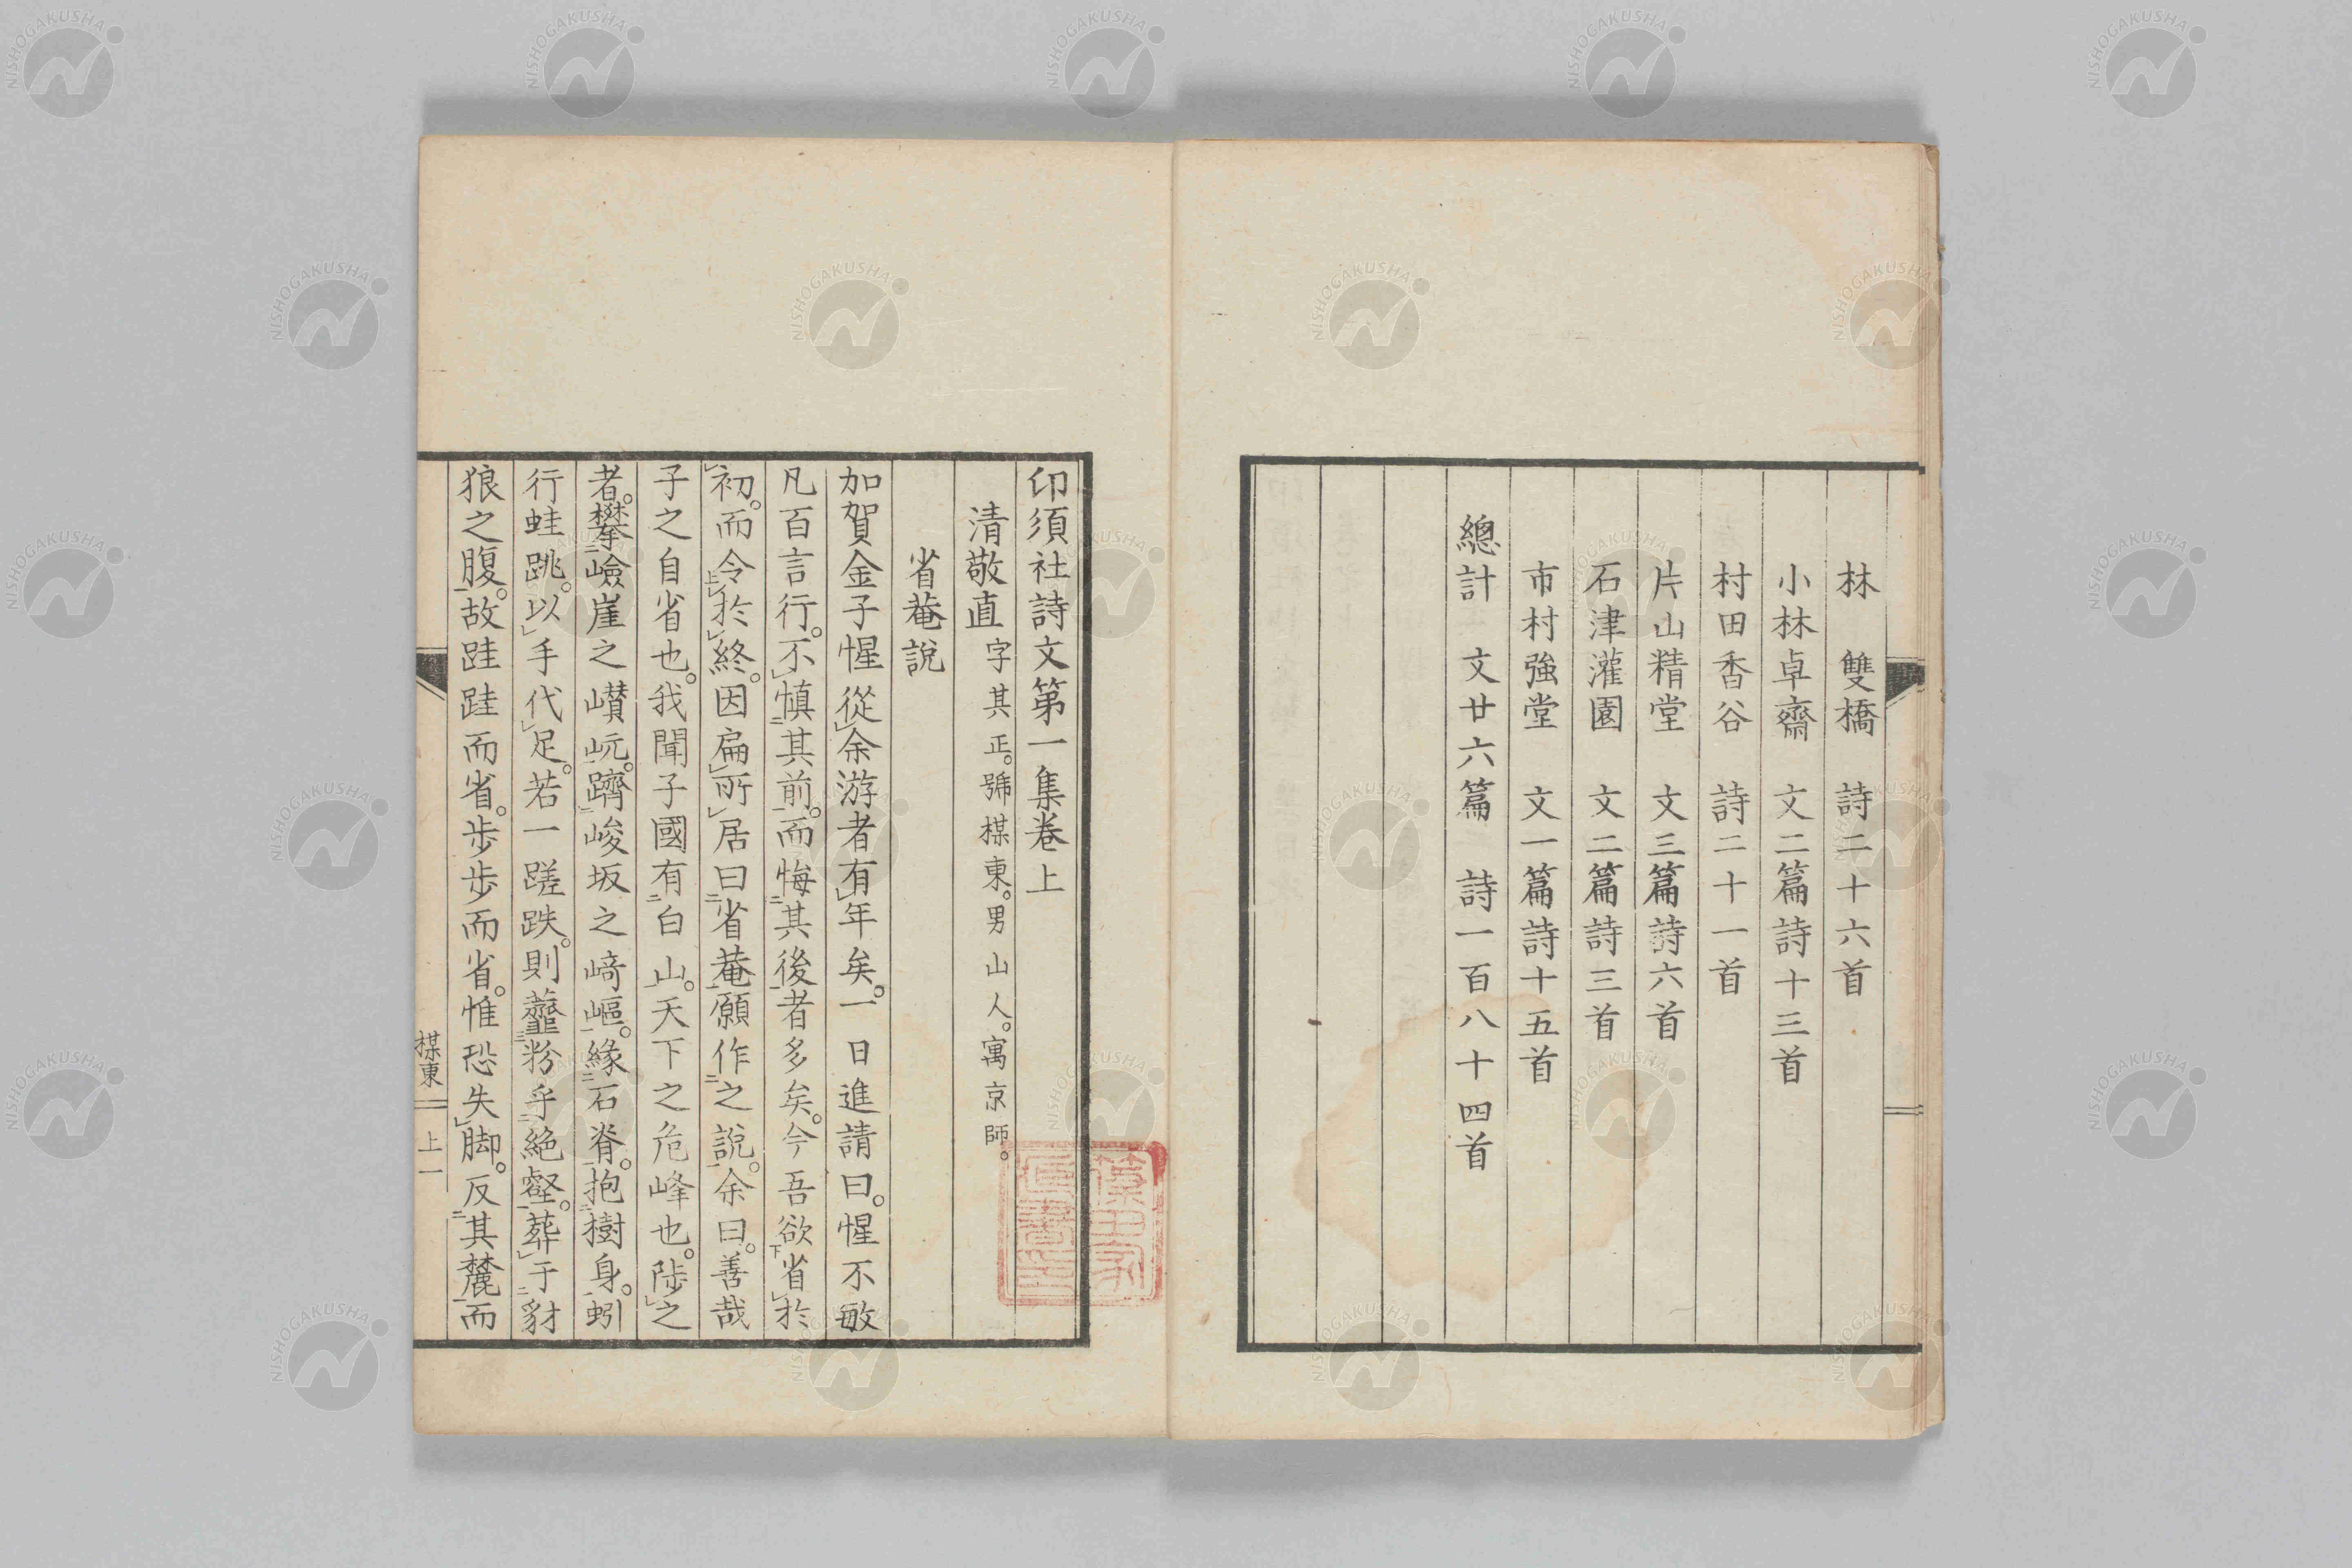 林　雙橋　詩二十六首
小林卓齋　文二篇詩十三首
村田香谷　詩二十一首
片山精堂　文三篇詩六首
石津灌園　文二篇詩三首
市村強堂　文一篇詩十五首
總計　文廿六篇　詩一百八十四首
卬須社詩文第一集卷上
清敬直字其正。號楳東。男山人。寓京師。
省菴說
加賀金子惺從余游者有年矣。一日進請曰。惺不敏
凡百言行。不慎其前。而悔其後者多矣。今吾欲省於
初。而令於終。因扁所居曰省菴願作之說。余曰。善哉
子之自省也。我聞子國有白山。天下之危峰也。陟之
者。攀嶮崖之巑岏。躋峻坂之﨑嶇。緣石脊。抱樹身。蚓
行蛙跳。以手代足。若一蹉跌。則虀粉乎絕壑。葬于豺
狼之腹。故跬跬而省。步步而省。惟恐失脚。反其麓而
楳東　上一
NISHOGAKUSHA